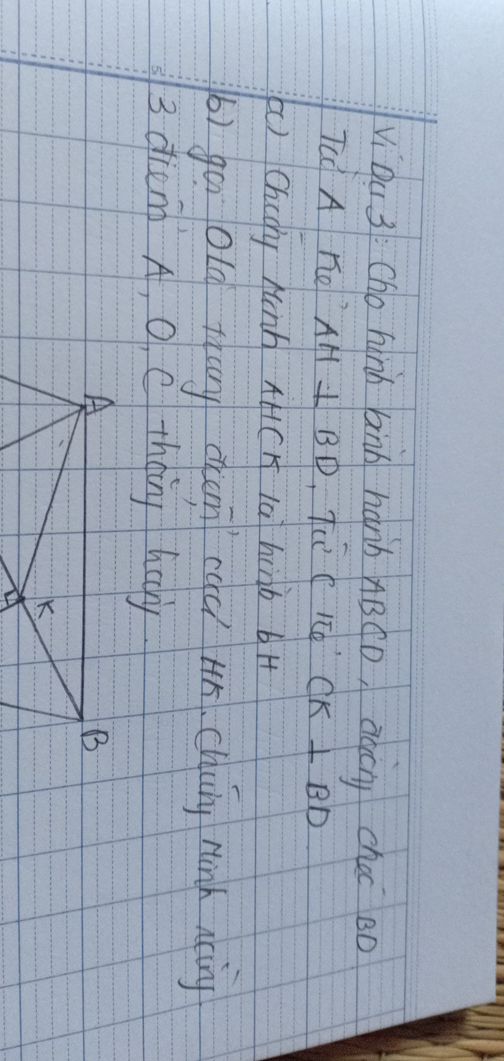 Ví Dụ 3: Cho hình bình hành ABCD, đường chéo BD
Từ A kẻ AH ⊥ BD, Từ C kẻ CK ⊥ BD
a) Chứng Minh AHCK là hình bH
b) gọi O là trung điểm của HK. Chứng Minh rằng
3 điểm A, O, C thẳng hàng
A
B
K